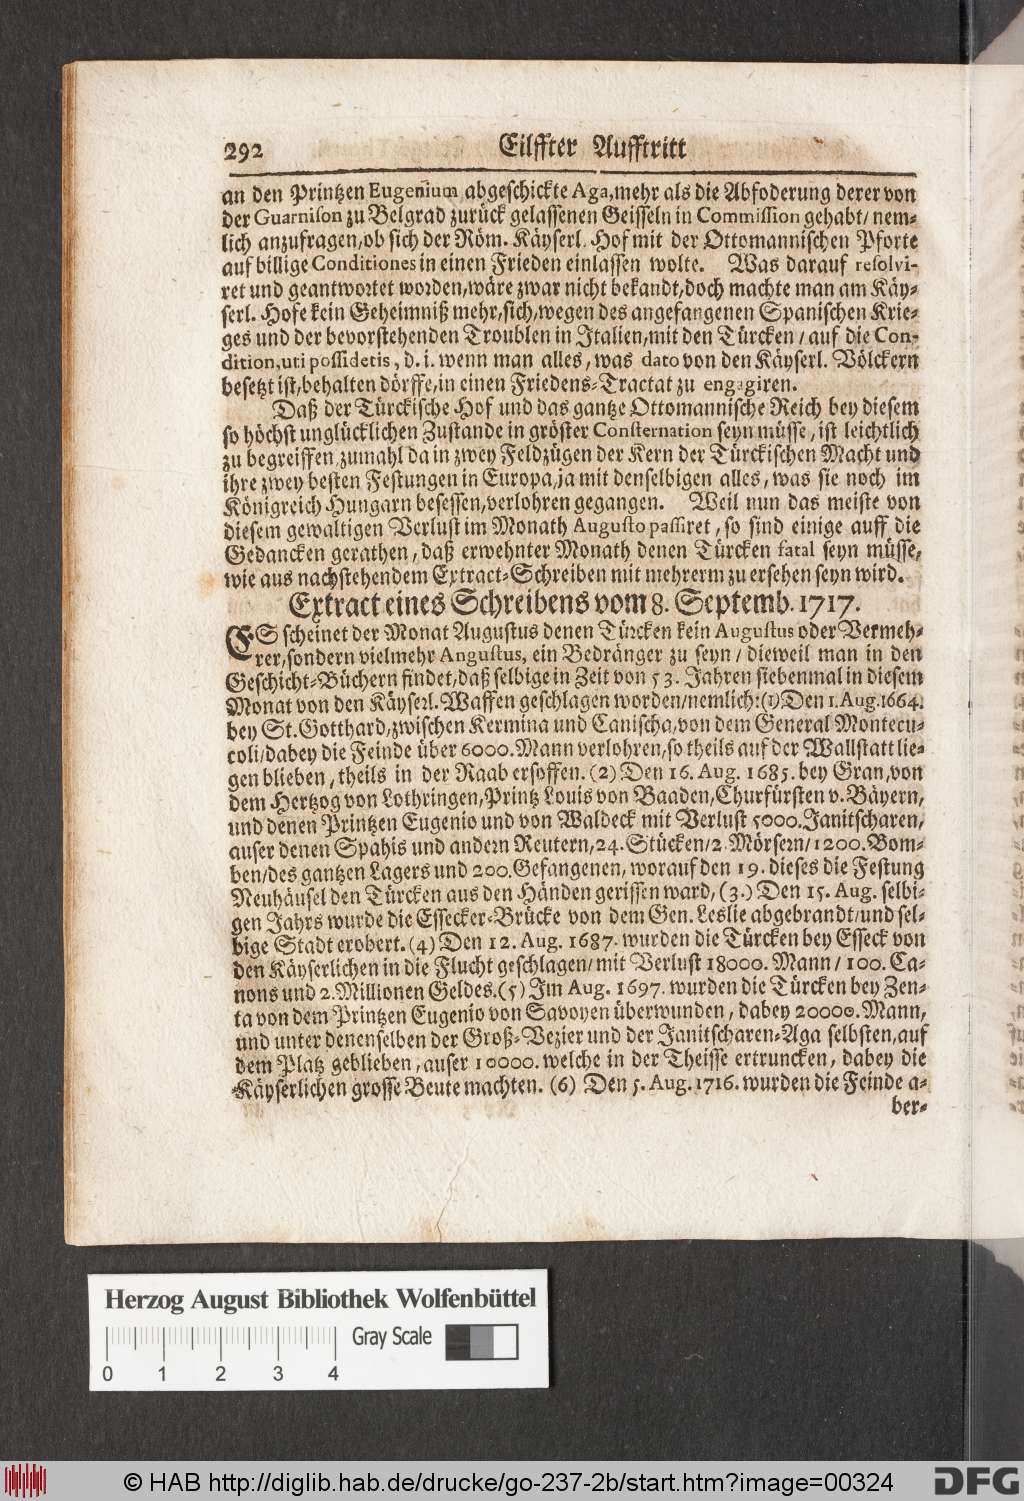 292 Eilffter Aufftritt
an den Printzen Eugenium abgeschickte Aga, mehr als die Abfoderung derer von
der Guarnison zu Belgrad zurück gelassenen Geisseln in Commission gehabt/ nem-
lich anzufragen, ob sich der Röm. Käyserl. Hof mit der Ottomannischen Pforte
auf billige Conditiones in einen Frieden einlassen wolte. Was darauf resolvi-
ret und geantwortet worden, wäre zwar nicht bekandt, doch machte man am Käy-
serl. Hofe kein Geheimniß mehr, sich, wegen des angefangenen Spanischen Krie-
ges und der bevorstehenden Troublen in Italien, mit den Türcken / auf die Con-
dition, uti possidetis, d. i. wenn man alles, was dato von den Käyserl. Völckern
besetzt ist, behalten dörffe, in einen Friedens-Tractat zu engagiren.
Daß der Türckische Hof und das gantze Ottomannische Reich bey diesem
so höchst unglücklichen Zustande in gröster Consternation seyn müsse, ist leichtlich
zu begreiffen, zumahl da in zwey Feldzügen der Kern der Türckischen Macht und
ihre zwey besten Festungen in Europa, ja mit denselbigen alles, was sie noch im
Königreich Hungarn besessen, verlohren gegangen. Weil nun das meiste von
diesem gewaltigen Verlust im Monath Augusto passiret, so sind einige auff die
Gedancken gerathen, daß erwehnter Monath denen Türcken fatal seyn müsse,
wie aus nachstehendem Extract-Schreiben mit mehrerm zu ersehen seyn wird.
Extract eines Schreibens vom 8. Septemb. 1717.
ES scheinet der Monat Augustus denen Türcken kein Augustus oder Vermeh-
rer, sondern vielmehr Angustus, ein Bedränger zu seyn / dieweil man in den
Geschicht-Büchern findet, daß selbige in Zeit von 53. Jahren siebenmal in diesem
Monat von den Käyserl. Waffen geschlagen worden/ nemlich: (1) Den 1. Aug. 1664.
bey St. Gotthard, zwischen Kermina und Canischa, von dem General Montecu-
coli/ dabey die Feinde über 6000. Mann verlohren, so theils auf der Wallstatt lie-
gen blieben, theils in der Raab ersoffen. (2) Den 16. Aug. 1685. bey Gran, von
dem Hertzog von Lothringen, Printz Louis von Baaden, Churfürsten v. Bäyern,
und denen Printzen Eugenio und von Waldeck mit Verlust 5000. Janitscharen,
auser denen Spahis und andern Reutern, 24. Stücken/ 2. Mörsern/ 1200. Bom-
ben/ des gantzen Lagers und 200. Gefangenen, worauf den 19. dieses die Festung
Neuhäusel den Türcken aus den Händen gerissen ward, (3.) Den 15. Aug. selbi-
gen Jahrs wurde die Essecker-Brücke von dem Gen. Leslie abgebrandt/ und sel-
bige Stadt erobert. (4) Den 12. Aug. 1687. wurden die Türcken bey Esseck von
den Käyserlichen in die Flucht geschlagen/ mit Verlust 18000. Mann / 100. Ca-
nons und 2. Millionen Geldes. (5) Im Aug. 1697. wurden die Türcken bey Zen-
ta von dem Printzen Eugenio von Savoyen überwunden, dabey 20000. Mann,
und unter denenselben der Groß-Vezier und der Janitscharen-Aga selbsten, auf
dem Platz geblieben, auser 10000. welche in der Theisse ertruncken, dabey die
Käyserlichen grosse Beute machten. (6) Den 5. Aug. 1716. wurden die Feinde a-
ber-
Herzog August Bibliothek Wolfenbüttel
Gray Scale
0 1 2 3 4
© HAB http://diglib.hab.de/drucke/go-237-2b/start.htm?image=00324
DFG